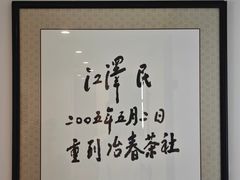 江泽民
二〇〇五年五月二日
重到冶春茶社